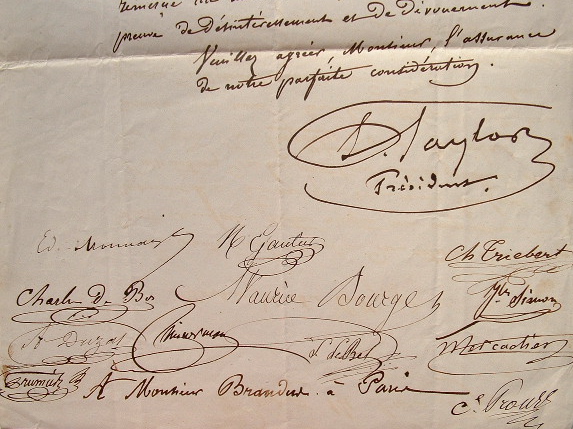 preuve de désintéressement et de dévouement.
Veuillez agréer, Monsieur, l'assurance
de notre parfaite considération.
D. Taylor
Président.
Ed. Monnais
N Gautier
Ch Triebert
Charles De Bez
Maurice Bourges
Simon
A Duzat
Mercadier
A Monsieur Brandus à Paris
Ce. Prouse